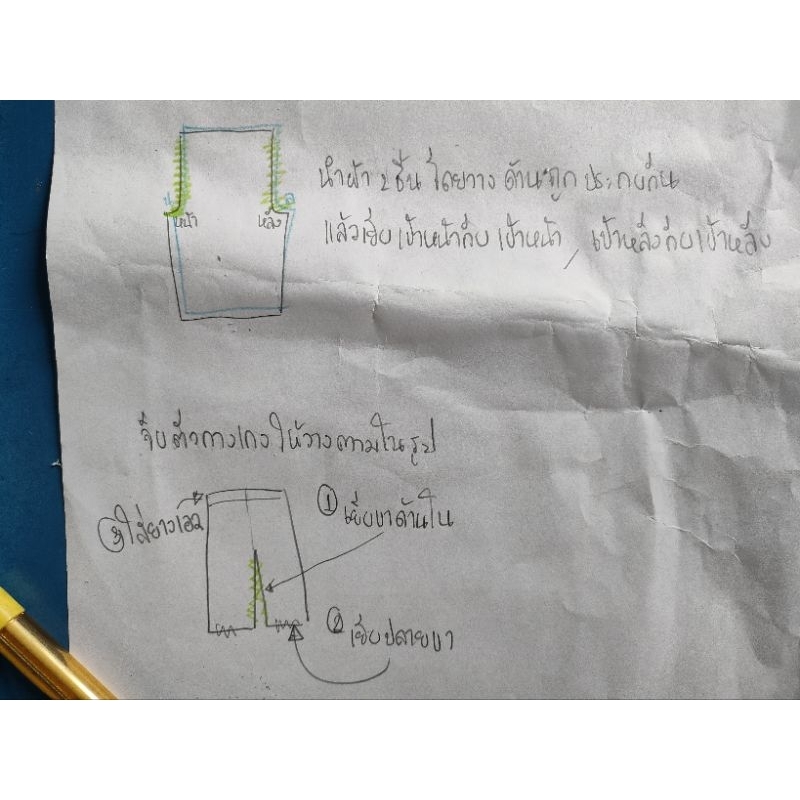 นำผ้า 2 ชิ้น โดยวาง ด้านถูก ประกบกัน
แล้วเย็บ เป้าหน้ากับ เป้าหน้า, เป้าหลังกับเป้าหลัง
หน้า หลัง
จับตัวกางเกง ให้วางตามในรูป
① เย็บขาด้านใน
③ ใส่ยางเอว
② เย็บปลายขา